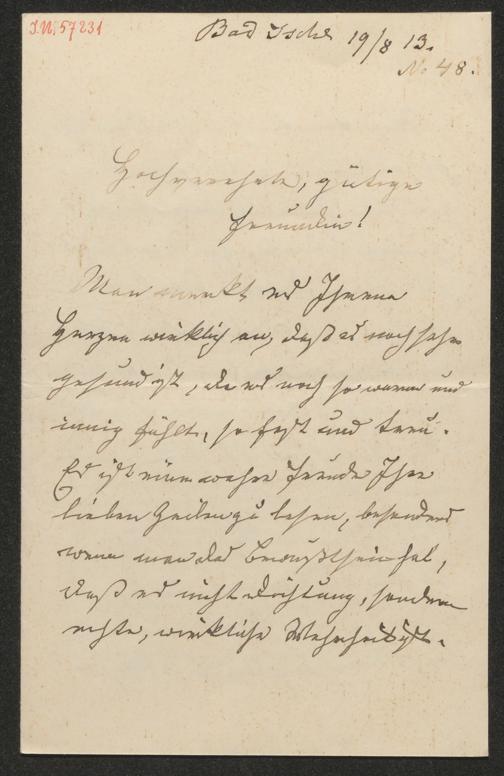 I.N. 57231
Bad Ischl 19/8 13.
No 48.
Hochverehrte, gütige
Freundin!
Man merkt es Ihrem
Herzen wirklich an, daß es noch sehr
gesund ist, da es noch so warm und
innig fühlt, so fest und treu.
Es ist eine wahre Freude Ihre
lieben Zeilen zu lesen, besonders
wenn man das Bewußtsein hat,
daß es nicht Dichtung, sondern
echte, wirkliche Wahrheit ist.